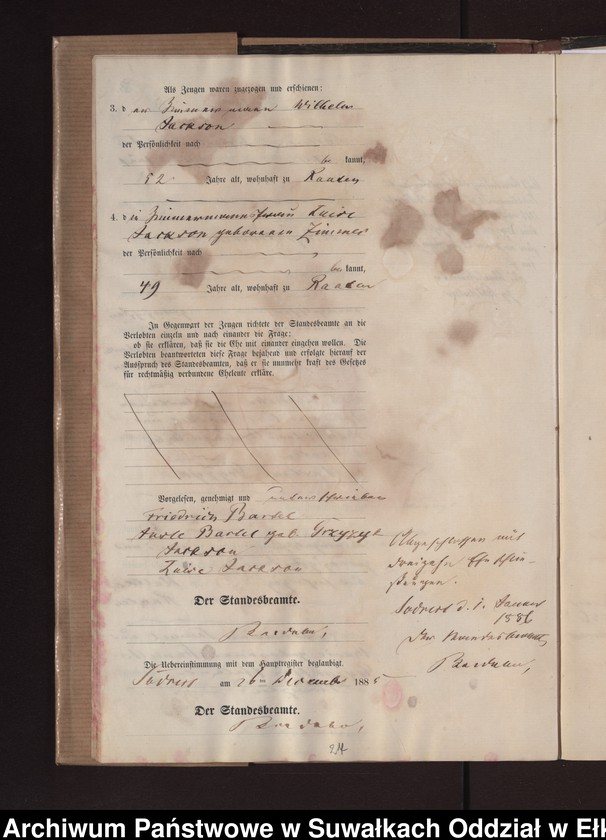 Als Zeugen waren zugezogen und erschienen:
3. der Zimmermann Wilhelm
Jackson
der Persönlichkeit nach
be kannt,
52 Jahre alt, wohnhaft zu
4. die Zimmermannsfrau Luise
Jackson geborenen Zimmer
der Persönlichkeit nach
be kannt,
49 Jahre alt, wohnhaft zu
In Gegenwart der Zeugen richtete der Standesbeamte an die
Verlobten einzeln und nach einander die Frage:
ob sie erklären, daß sie die Ehe mit einander eingehen wollen. Die
Verlobten beantworteten diese Frage bejahend und erfolgte hierauf der
Ausspruch des Standesbeamten, daß er sie nunmehr kraft des Gesetzes
für rechtmäßig verbundene Eheleute erkläre.
Vorgelesen, genehmigt und unterschrieben
Friedrich Bartel
Bartel geb.
Jackson
Luise Jackson
Der Standesbeamte.
Die Uebereinstimmung mit dem Hauptregister beglaubigt.
am 26ten December 1885
Der Standesbeamte.
24
Abgeschlossen mit
dreizehn
d. 1. Januar
1886
Der Standesbeamte,
Archiwum Państwowe w Suwałkach Oddział w Ełk